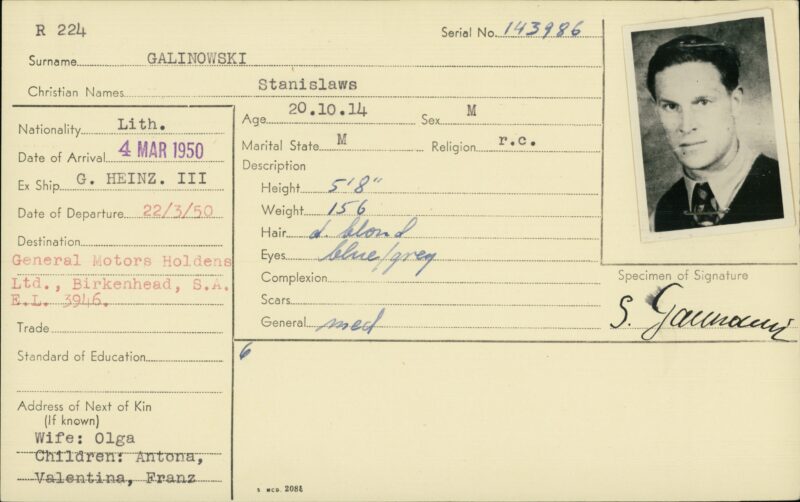 R 224
Serial No. 143986
Surname GALINOWSKI
Christian Names Stanislaws
Nationality Lith.
Date of Arrival 4 MAR 1950
Ex Ship G. HEINZ. III
Date of Departure 22/3/50
Destination
General Motors Holdens
Ltd., Birkenhead, S.A.
E.L. 3946.
Trade
Standard of Education
Address of Next of Kin
(If known)
Wife: Olga
Children: Antona,
Valentina, Franz
Age 20.10.14 Sex M
Marital State M Religion r.c.
Description
Height 5'8"
Weight 156
Hair d. blond
Eyes blue/grey
Complexion
Scars
General med
6
Specimen of Signature
S.